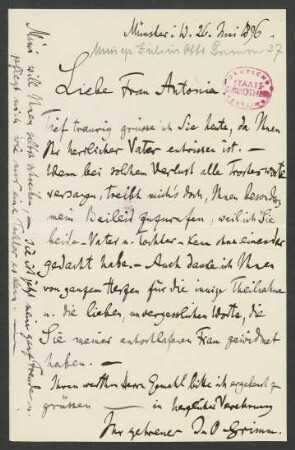 Münster i. W. 26. Juni 1896.
Liebe Frau Antonia.
Tief traurig grüsse ich Sie heute, da Ihnen
Ihr herrlicher Vater entrissen ist. –
Wenn bei solchem Verlust alle Trostesworte
versagen, treibt mich's doch, Ihnen besonders
mein Beileid zuzurufen, weil ich Sie
beide – Vater u. Tochter – kaum ohne einander
gedacht habe. – Auch danke ich Ihnen
von ganzem Herzen für die innige Theilnahme
u. die lieben, unvergesslichen Worte, die
Sie meiner entschlafenen Frau gewidmet
haben. –
Ihren werthen Herrn Gemahl bitte ich ergebenst zu
grüssen – in herzlicher Verehrung
Ihr getreuer J. O. Grimm.
will Ihnen selbst schreiben – sie ist jetzt mein
DEUTSCHE
STAATS
BIBLIOTHEK
BERLIN
37